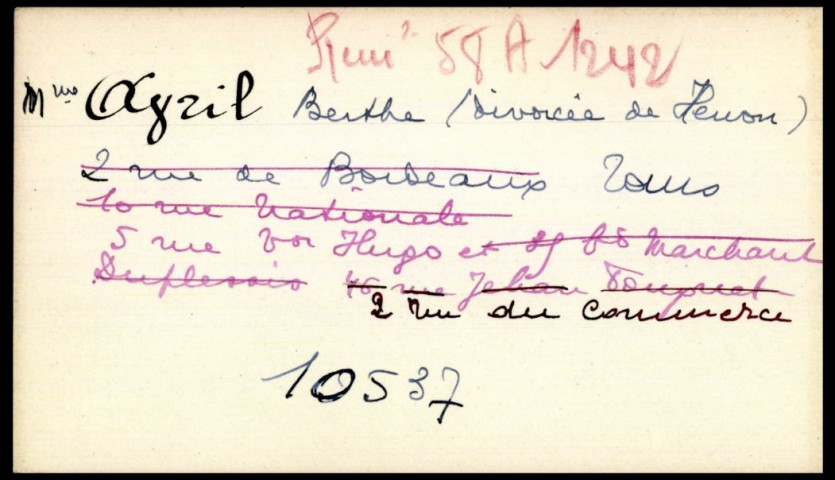 58 A 1242
Mme Ayril Berthe (divorcée de Henon)
2 rue de Bordeaux Tours
10 rue Nationale
5 rue Vor Hugo et 89 bd Marchant
Duplessis 46 rue Jehan Fouquet
2 rue du Commerce
10537